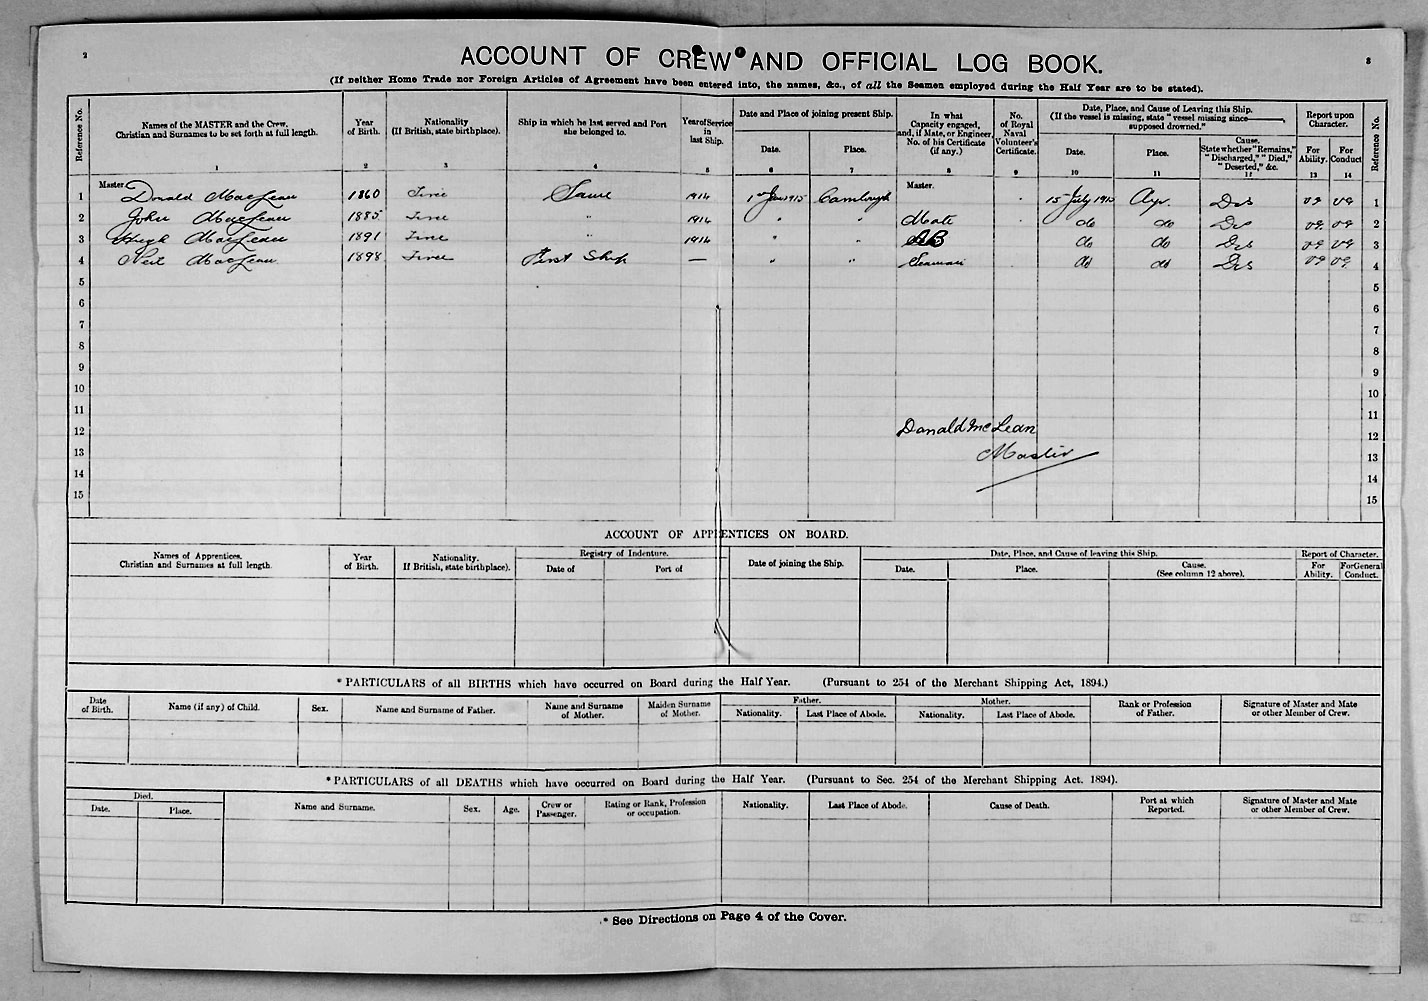 2
3
ACCOUNT OF CREW AND OFFICIAL LOG BOOK.
(If neither Home Trade nor Foreign Articles of Agreement have been entered into, the names, &c., of all the Seamen employed during the Half Year are to be stated).
Reference No.
Names of the MASTER and the Crew. Christian and Surnames to be set forth at full length.
Year of Birth.
Nationality (If British, state birthplace).
Ship in which he last served and Port she belonged to.
Year of Service in last Ship.
Date and Place of joining present Ship.
Date.
Place.
In what Capacity engaged, and, if Mate, or Engineer, No. of his Certificate (if any.)
No. of Royal Naval Volunteer's Certificate.
Date, Place, and Cause of Leaving this Ship.
(If the vessel is missing, state "vessel missing since———, supposed drowned."
Date.
Place.
Cause. State whether "Remains," "Discharged," "Died," "Deserted," &c.
Report upon Character.
For Ability.
For Conduct
Reference No.
1 2 3 4 5 6 7 8 9 10 11 12 13 14
1 Master. Donald MacLean 1860 Tiree Same 1914 1st Jan 1915 Master. 15 July 1915 Ayr. Dis VG VG 1
2 John MacLean 1885 Tiree " 1914 " " Mate do do Dis VG VG 2
3 Hugh MacLean 1891 Tiree " 1914 " " AB do do Dis VG VG 3
4 Neil MacLean 1898 Tiree First Ship — " " Seaman do do Dis VG VG 4
5 5
6 6
7 7
8 8
9 9
10 10
11 11
12 Donald McLean 12
13 Master 13
14 14
15 15
ACCOUNT OF APPRENTICES ON BOARD.
Names of Apprentices. Christian and Surnames at full length.
Year of Birth.
Nationality. If British, state birthplace).
Registry of Indenture.
Date of
Port of
Date of joining the Ship.
Date, Place, and Cause of leaving this Ship.
Date.
Place.
Cause. (See column 12 above).
Report of Character.
For Ability.
For General Conduct.
* PARTICULARS of all BIRTHS which have occurred on Board during the Half Year. (Pursuant to 254 of the Merchant Shipping Act, 1894.)
Date of Birth.
Name (if any) of Child.
Sex.
Name and Surname of Father.
Name and Surname of Mother.
Maiden Surname of Mother.
Father.
Nationality.
Last Place of Abode.
Mother.
Nationality.
Last Place of Abode.
Rank or Profession of Father.
Signature of Master and Mate or other Member of Crew.
* PARTICULARS of all DEATHS which have occurred on Board during the Half Year. (Pursuant to Sec. 254 of the Merchant Shipping Act. 1894).
Died.
Date.
Place.
Name and Surname.
Sex.
Age.
Crew or Passenger.
Rating or Rank, Profession or occupation.
Nationality.
Last Place of Abode.
Cause of Death.
Port at which Reported.
Signature of Master and Mate or other Member of Crew.
* See Directions on Page 4 of the Cover.